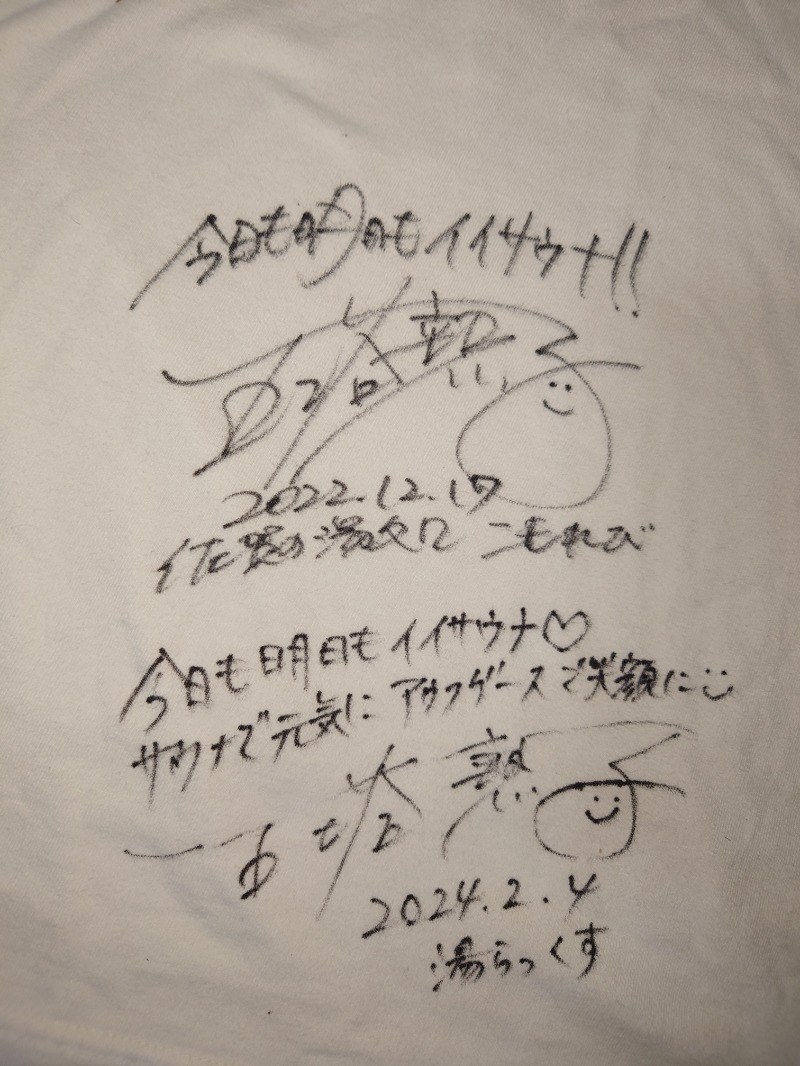 今日も明日もイイサウナ!!
熱子
2022.12.17
佐賀の湯
こもれび
今日も明日もイイサウナ♡
サウナで元気に アウフグースで笑顔に
熱子
2024.2.4
湯らっくす